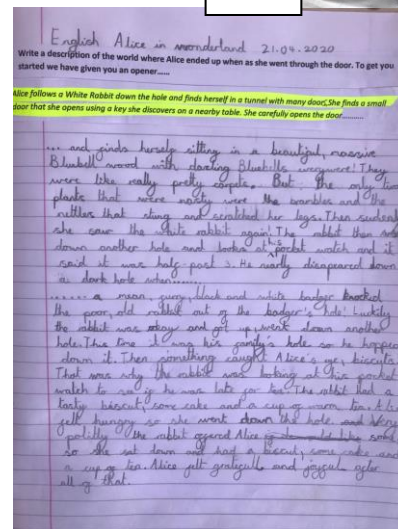 English Alice in wonderland 21.04.2020
Write a description of the world where Alice ended up when as she went through the door. To get you
started we have given you an opener......
Alice follows a White Rabbit down the hole and finds herself in a tunnel with many doors. She finds a small
door that she opens using a key she discovers on a nearby table. She carefully opens the door..........
... and finds herself sitting in a beautiful, massive
Bluebell wood with Bluebells They
were like really pretty carpets. But the only two
plants that were nasty were the brambles and the
nettles that sting and scratched her legs. Then
she saw the white rabbit again! The rabbit then
down another hole and looks at his pocket watch and it
said it was half past 3. He nearly disapeared down
a dark hole when......
...... a mean, black and white badger knocked
the poor, old rabbit out of the badger's hole! Luckily
the rabbit was okay and got up, went down another
hole. This time it was his family's hole so he hopped
down it. Then something caught Alice's eye, biscuits.
That was why the rabbit was looking at his pocket
watch to if he was late for tea. The rabbit had a
tasty biscuit, some cake and a cup of warm tea.
felt hungry so she went down the hole and Very
the rabbit offered Alice some
so she sat down and had a biscuit, some cake and
a cup of tea. Alice felt and joyful after
all of that.